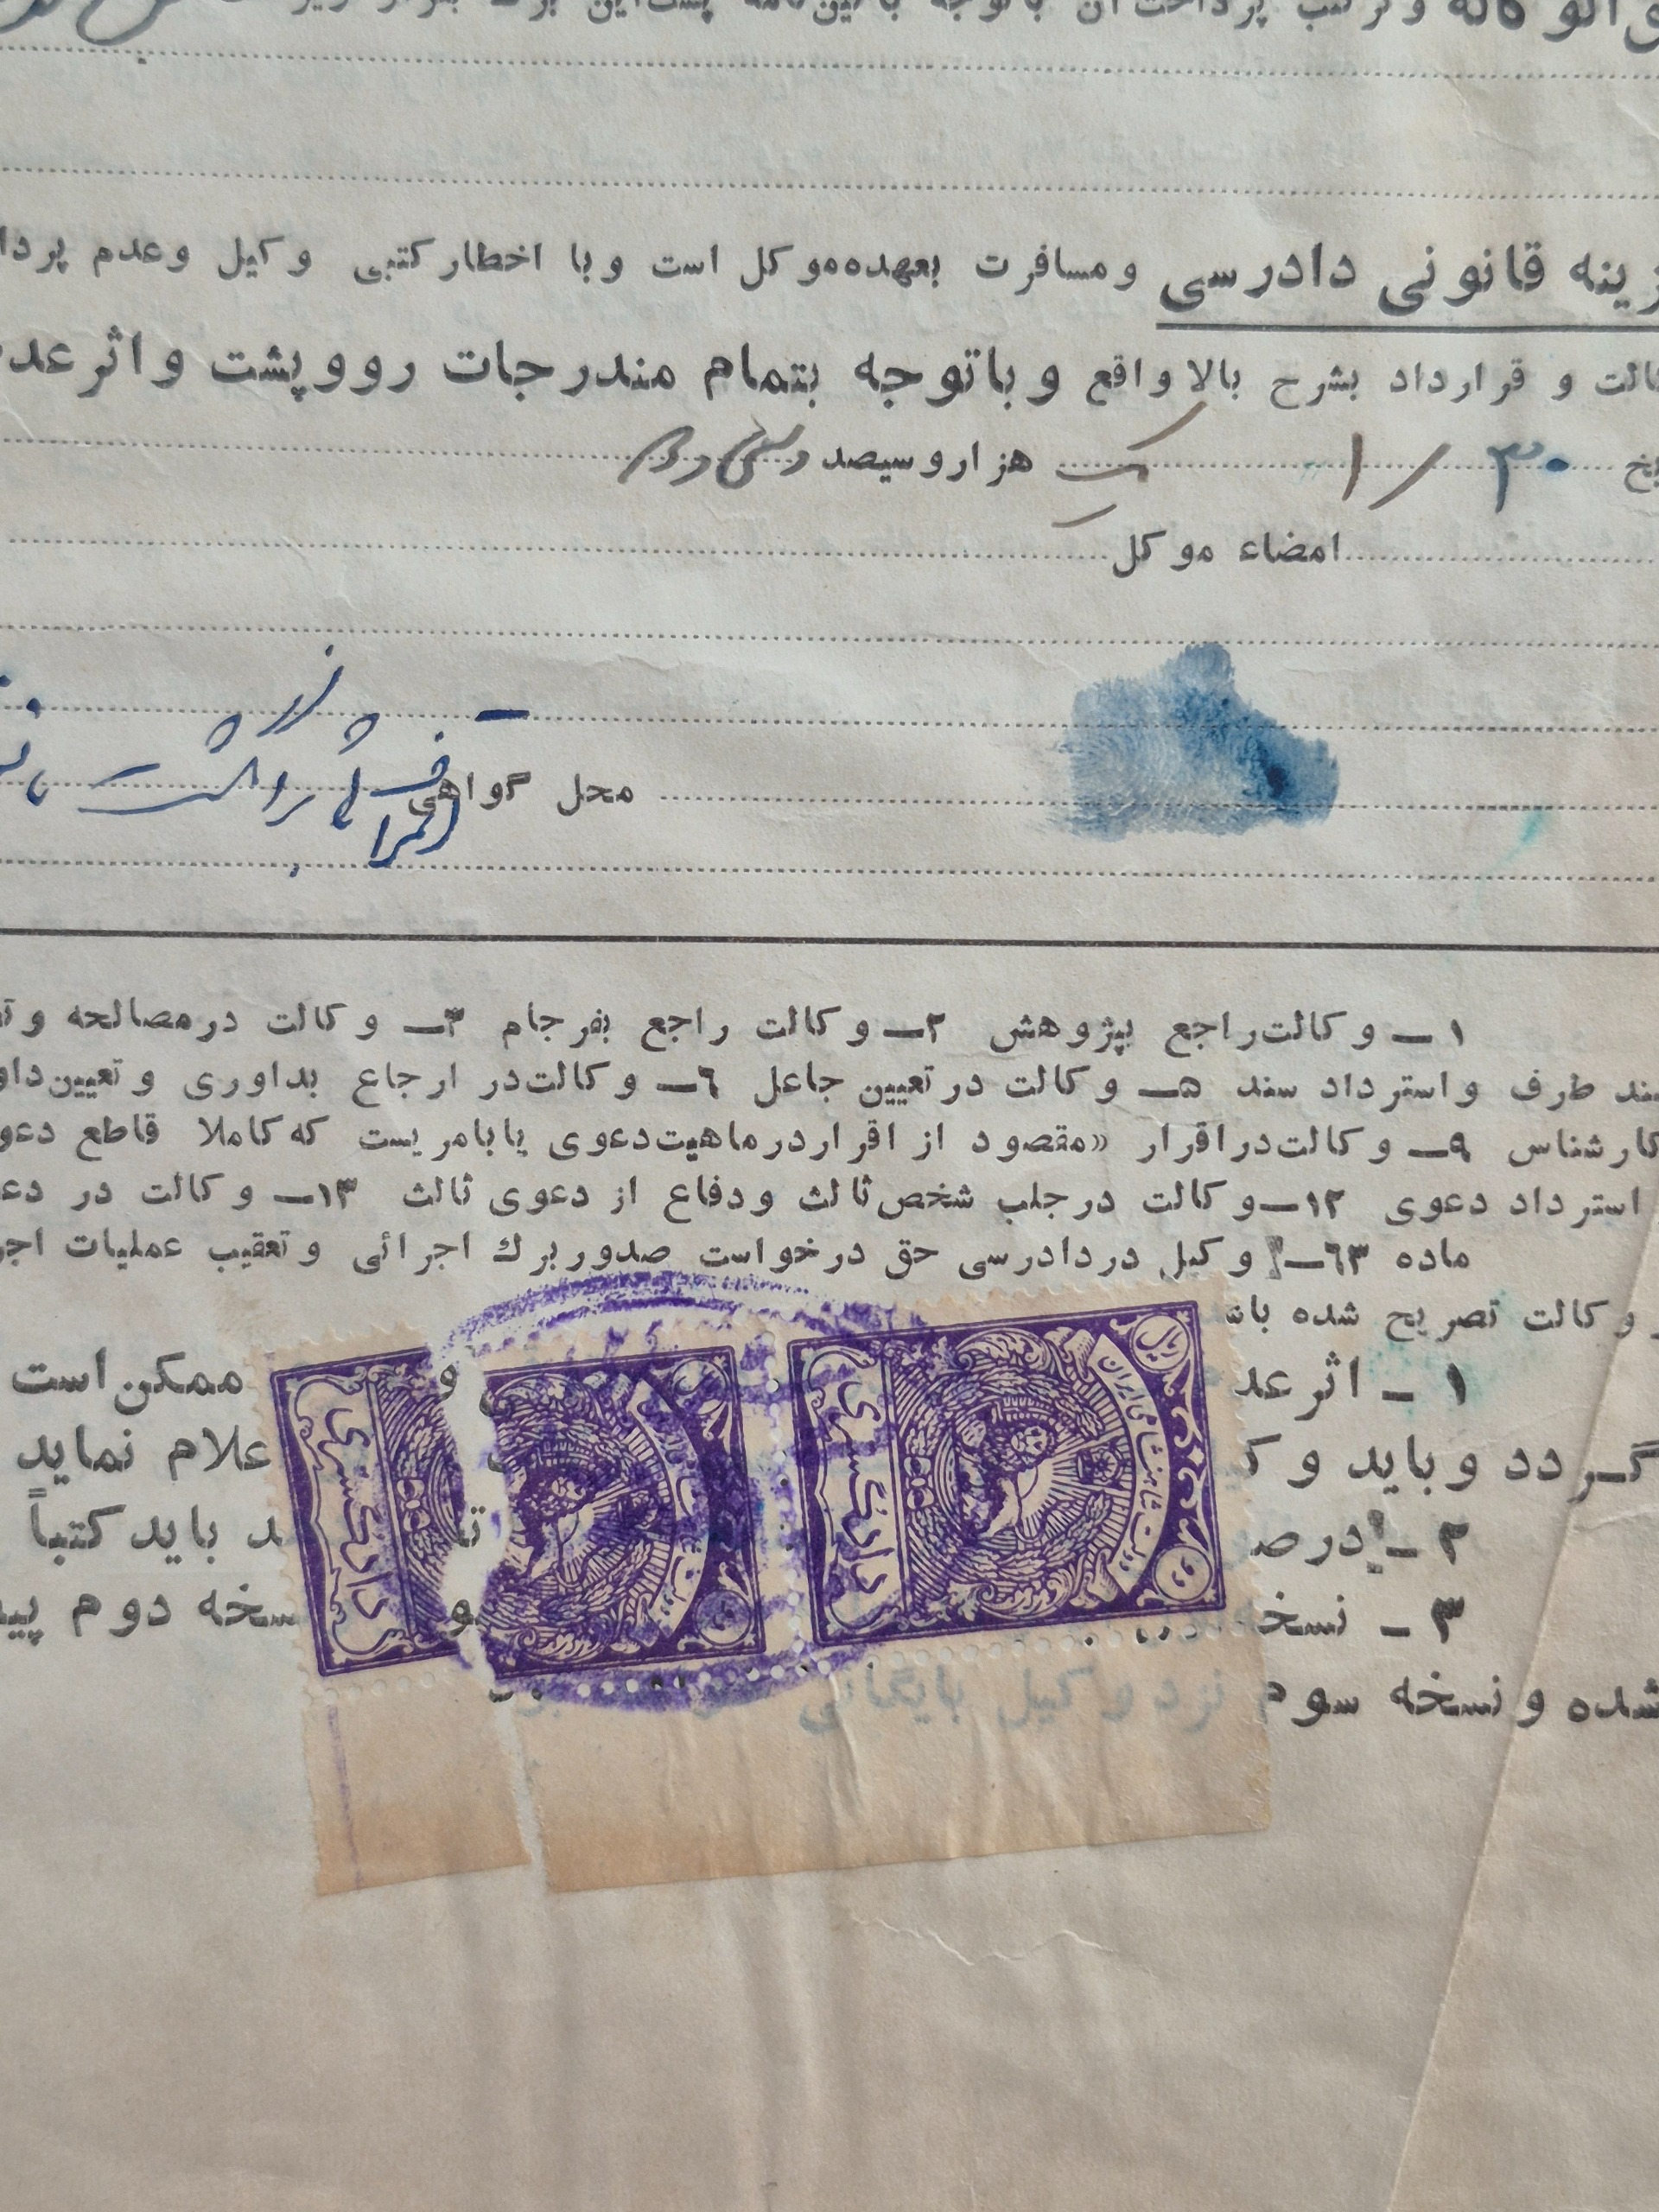 و ترتیب پرداخت آن باتوجه
زینه قانونی دادرسی ومسافرت بعهده موکل است وبا اخطارکتبی وکیل وعدم پردا
کالت و قرارداد بشرح بالا واقع وباتوجه بتمام مندرجات روو پشت واثرعد
یخ ۳۰ / ۱ یک هزاروسیصد وسی و
امضاء موکل
محل گواهی
۱ــ وکالت راجع بپژوهش ۲ــ وکالت راجع بفرجام ۳ــ وکالت درمصالحه و
سند طرف واسترداد سند ۵ــ وکالت درتعیین جاعل ٦ــ وکالت در ارجاع بداوری وتعیین داو
کارشناس ۹ــ وکالت دراقرار «مقصود از اقراردرماهیت دعوی یابامریست که کاملا قاطع دعو
استرداد دعوی ۱۲ــ وکالت درجلب شخص ثالث ودفاع از دعوی ثالث ۱۳ــ وکالت در دعـ
ماده ٦۳ــ وکیل دردادرسی حق درخواست صدوربرك اجرائی وتعقیب عملیات اجر
وکالت تصریح شده باشـ
۱ ــ اثرعد و ممکن است
گـردد وباید وکـ علام نماید
۲ ــ درصـ تـ ـد باید کتباً
۳ ــ نسخـ سخه دوم پیـ
شده ونسخه سوم نزد وکیل بایگانی
ریال
دولت شاهنشاهی ایران
دادگستری
دادگستری